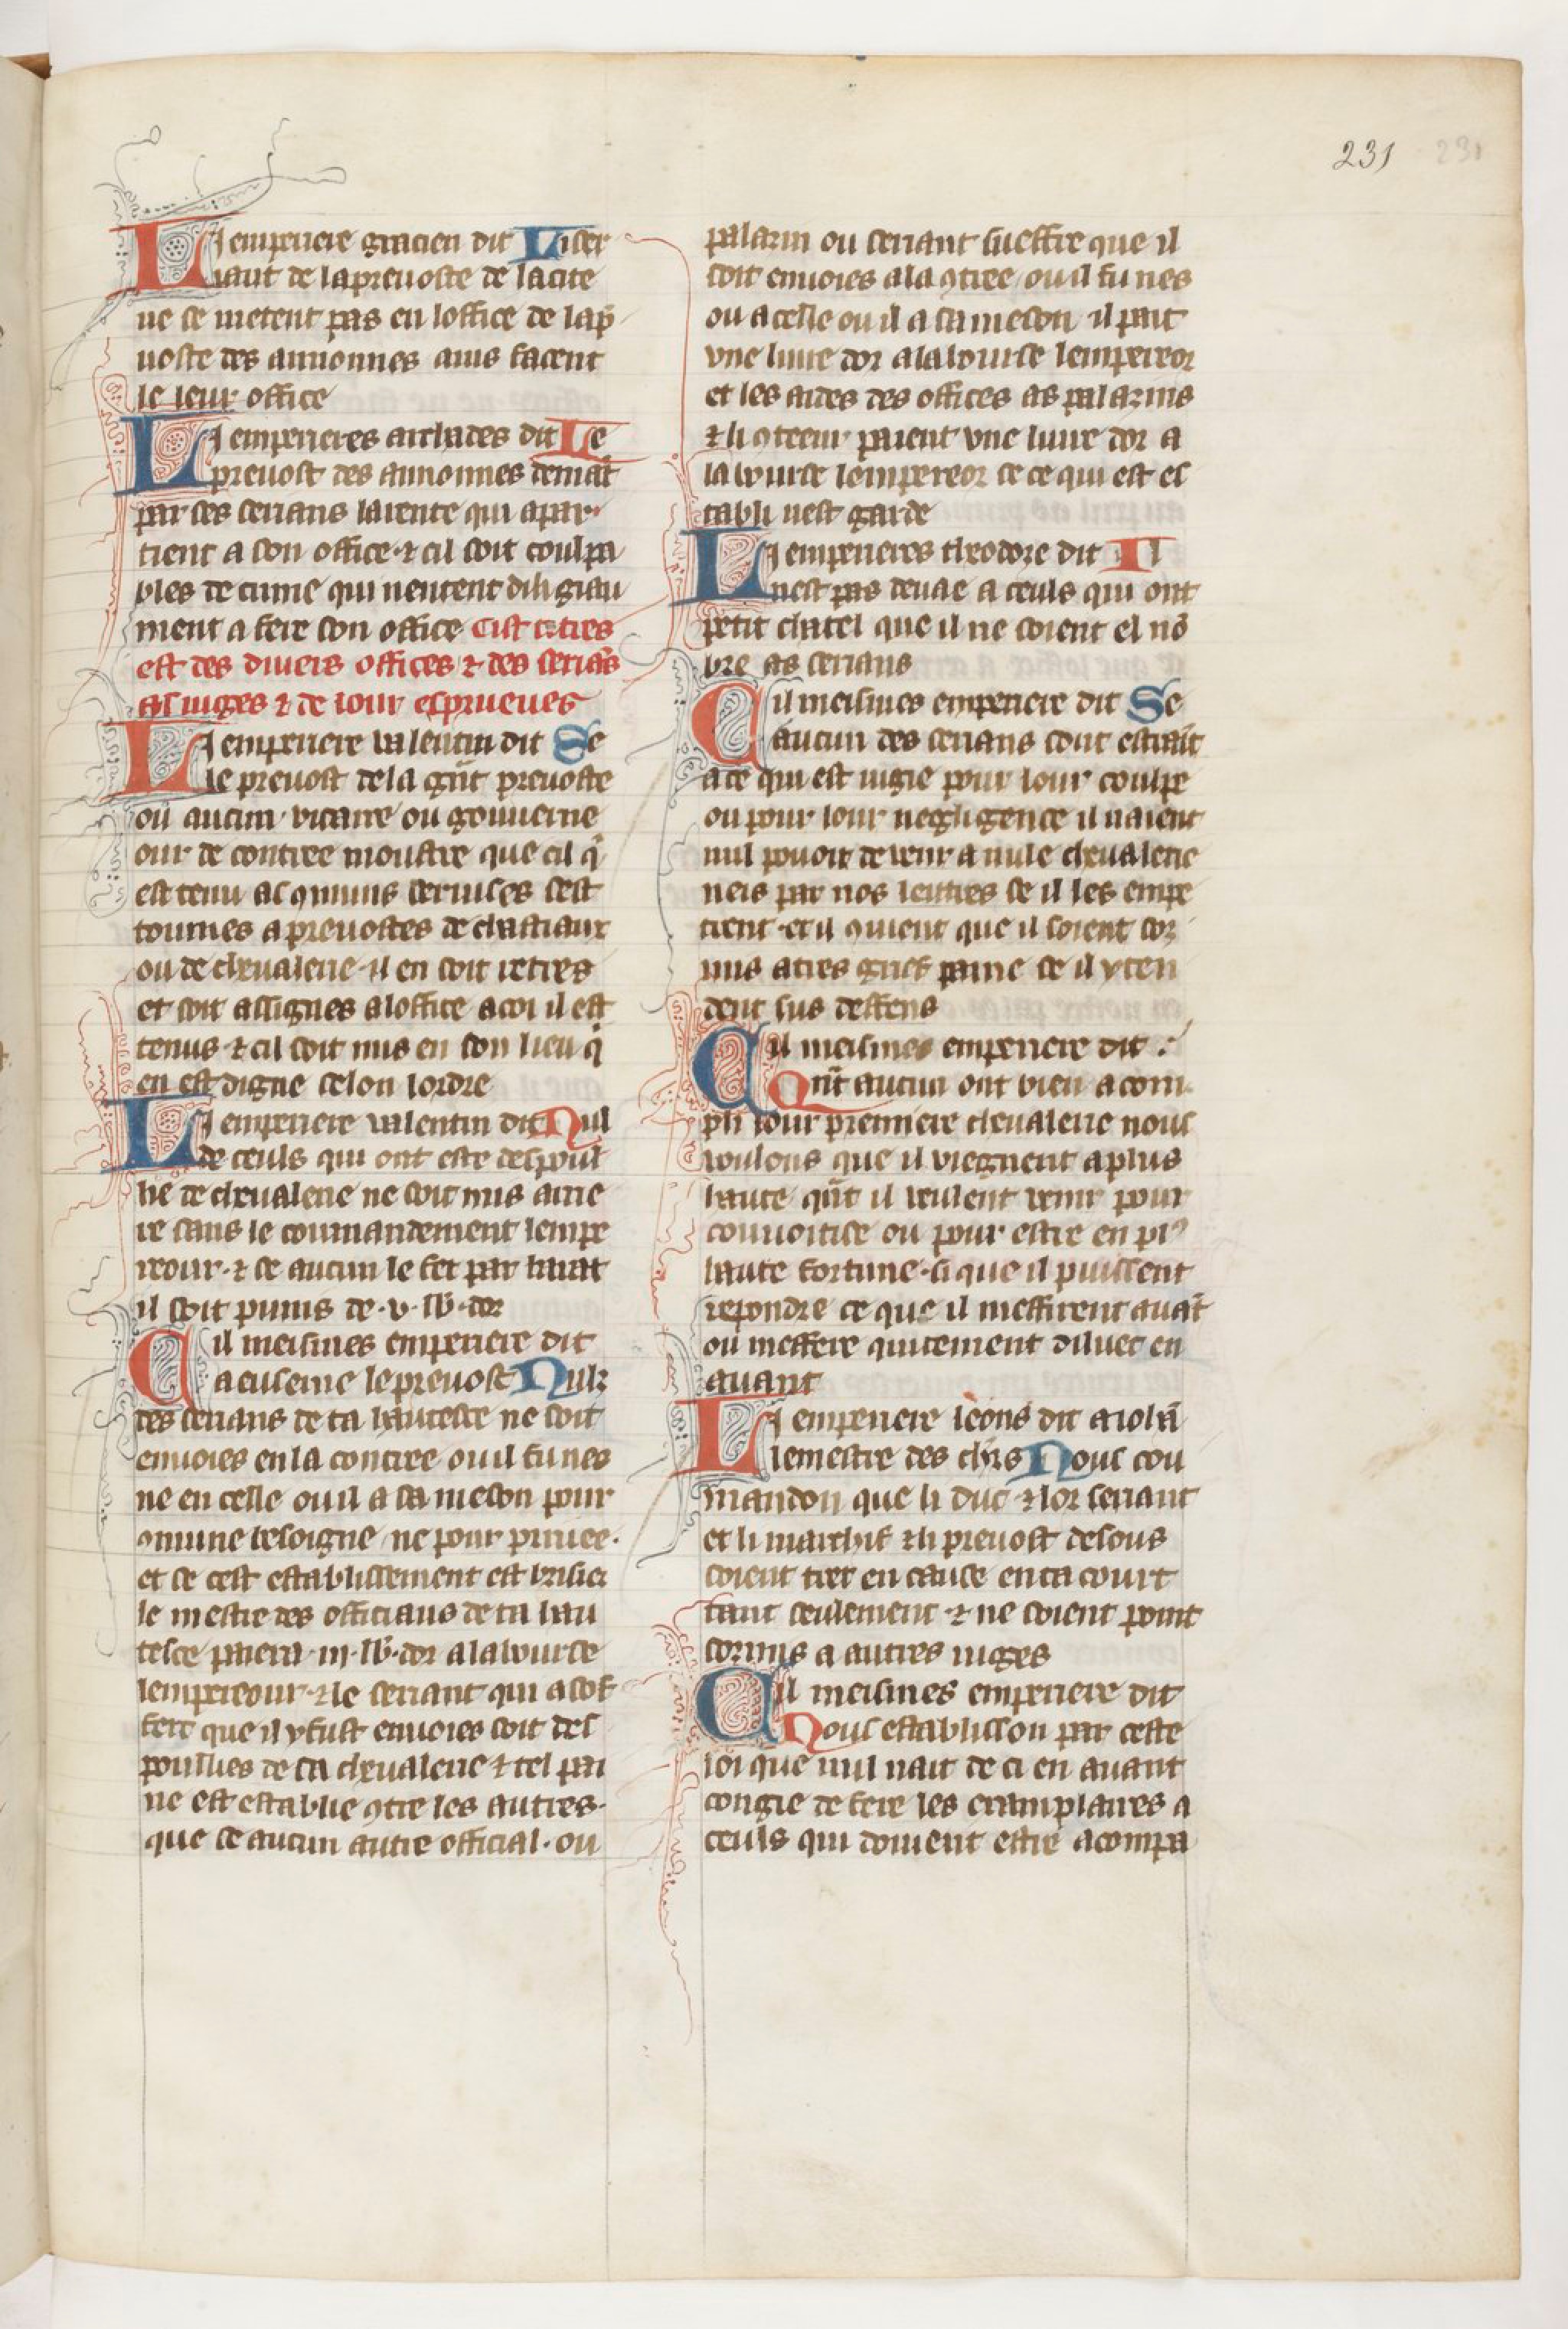 231
Li emperiere gracien dit Li ser
iant de la preuoste de la cite
ne se metent pas en loffice de la p̄
uoste des annonnes ains facent
le leur office
Li emperieres archades dit Le
preuost des annonnes demāt
par ses serians la rente qui apar
tient a son office ⁊ cil soit coulpa
bles de crime qui nentent diligiau
ment a fere son office Cist titres
est des diuers offices ⁊ des seriās
as iuges ⁊ de lour esprueues
Li emperiere valentin dit Se
le preuost de la gn̄t preuoste
ou aucun vicaire ou gouuerne
our de contree moustre que cil q̄
est tenu as ꝯmuns seruises sest
tournes a preuostes de chastiaux
ou de cheualerie il en soit retres
et soit assignes a loffice a coi il est
tenus ⁊ cil soit mis en son lieu q̄
en est digne selon lordre
Li emperiere valentin dit Nul
de ceuls qui ont este despoul
lie de cheualerie ne soit mis arrie
re sans le commandement lempe
reour ⁊ se aucun le fet par barat
il soit punis de .v. lb̄. dor
Cil meismes emperiere dit
a euseme le preuost Nulz
des serians de ta hautesce ne soit
enuoies en la contree ou il fu nes
ne en celle ou il a sa meson pour
ꝯmune besoigne ne pour priuee.
et se cest establissement est brisier
le mestre des officiaus de ta hau
tesce paiera .iij. lb̄. dor a la bourse
lempereour ⁊ le seriant qui a sof
fert que il y fust enuoies soit des
poullies de sa cheualerie ⁊ tel pai
ne est establie ꝯtre les autres.
que se aucun autre official. ou
palazin ou seriant sueffre que il
soit enuoies a la ꝯtree ou il fu nes
ou a celle ou il a sa meson il pait
vne liure dor a la bourse lempereor
et les aides des offices as palazins
⁊ li ꝯteeur paient vne liure dor a
la bourse lempereor se ce qui est es
tabli nest garde
Li emperieres theodoze dit Il
nest pas deuae a ceuls qui ont
petit chatel que il ne soient el nō
bre as serians
Cil meismes emperiere dit Se
aucun des serians sont estraīt
a ce qui est iugie pour lour coulpe
ou pour lour negligence il naient
nul pouoir de venir a nule cheualerie
neis par nos lettres se il les empe
trent et il ꝯuient que il soient soz
mis a tres grief paine se il y ten
dent sus deffens
Cil meismes emperiere dit
Qn̄t aucun ont bien acom
pli lour premiere cheualerie nous
voulons que il viegnent a plus
haute qn̄t il veulent venir pour
couuoitise ou pour estre en plꝰ
haute fortune si que il puissent
repondre ce que il meffirent auāt
ou meffere quitement diluec en
auant
Li emperiere leons dit a iolā
le mestre des chr̄s Nous cou
mandon que li duc ⁊ lor seriant
et li marchis ⁊ li preuost desous
soient tret en cause en ta court
tant seulement ⁊ ne soient point
sozmis a autres iuges
Cil meismes emperiere dit
Nous establisson par ceste
loi que nul nait de ci en auant
congie de fere les examplaires a
ceuls qui doiuent estre acompa